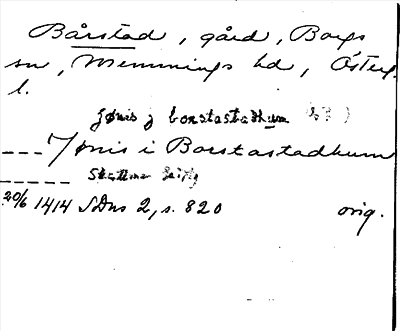 Bårstad, gård, Borgs
sn, Memmings hd, Österg.
l.
Jønis j borstastadhum
---Jønis i Borstastadhum
20/6 1414 SDns 2, s. 820 orig.